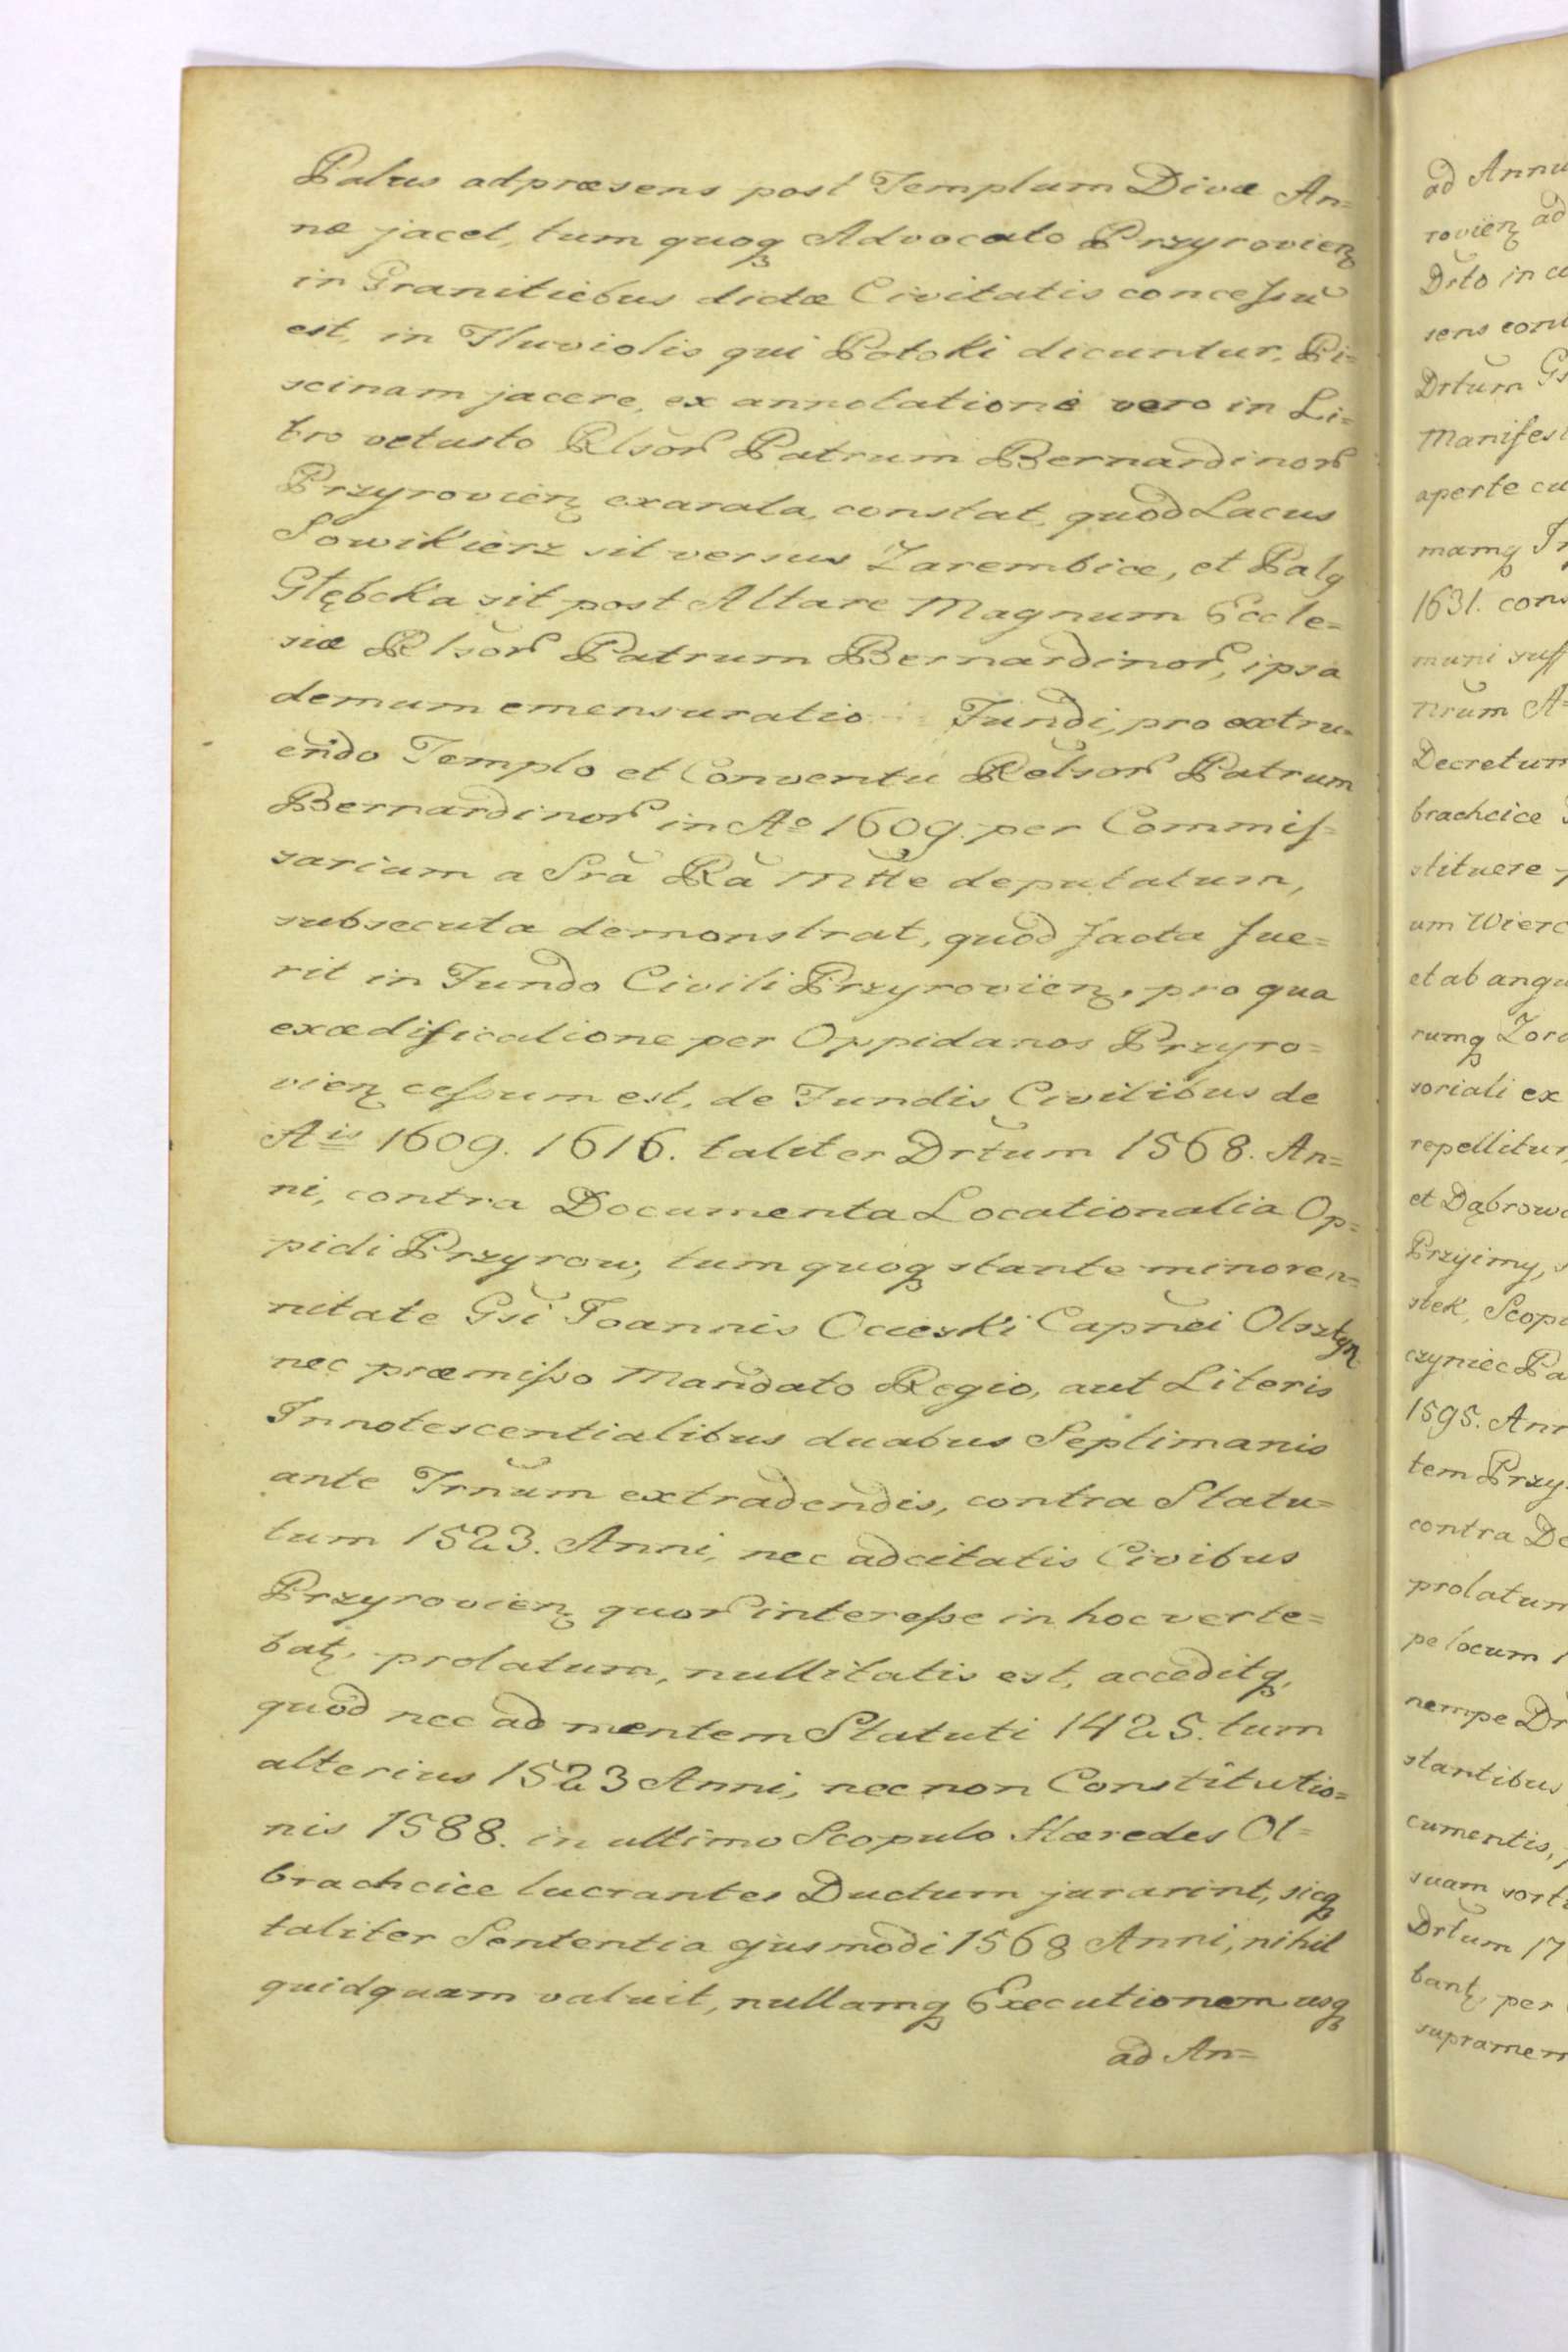 Palus adpræsens post Templum Divæ An=
næ jacet, tum quoq Advocato Przyrovien
in Granitiebus dictæ Civitatis concessũ
est, in Fluviolis qui Potoki dicuntur, Pi=
scinam jacere, ex annotatione vero in Li=
bro vetusto Rlsor Patrum Bernardinor
Przyrovien exarata, constat, quod Lacus
Sowikierz sit versus Zarembice, et Palq
Głębcka sit post Altare Magnum Eccle=
siæ Rlsor Patrum Bernardinor, ipsa
demum emensuratio Fundi, pro extru=
endo Templo et Conventu Relsor Patrum
Bernardinor in Aº 1609. per Commis=
sarium a Sra Ra Mtte deputatum,
subsecuta demonstrat, quod facta fue=
rit in Fundo Civili Przyrovien, pro qua
exædificatione per Oppidanos Przyro=
vien cessum est, de Fundis Civilibus de
Ais 1609. 1616. taliter Drtum 1568. An=
ni, contra Documenta Locationalia Op=
pidi Przyrow, tum quoq stante minoren=
nitate Gsi Joannis Ocieski Capnei Olsztyn
nec præmisso Mandato Regio, aut Literis
Innotescentialibus duabus Septimanis
ante Trnum extradendis, contra Statu=
tum 1523. Anni, nec adcitatis Civibus
Przyrovien quor interesse in hoc verte=
bat, prolatum, nullitatis est, acceditq,
quod nec ad mentem Statuti 1425. tum
alterius 1523 Anni, nec non Constitutio=
nis 1588. in ultimo Scopulo Hæredes Ol=
brachcice lucrantes Ductum jurarint, sicq
taliter Sententia ejusmodi 1568 Anni, nihil
quidquam valuit, nullamq Executionem usq
ad An=
ad Annu
rovien ad
Drto in
sens
Drtum
Manifes
aperte
mamq
1631. cons
muni suff
Trnum A=
Decretum
brachcice
stituere
um Wierc
et ab angu
rumq Zor
soriali ex
repellitur
et Dąbrow
Przyimy,
stek, Scop
czyniec Pa
1595. Ann
tem Przy
contra Do
prolatum
pe locum
nempe Dr
stantibus
cumentis,
suam sort
Drtum 17
bant, per
supramem